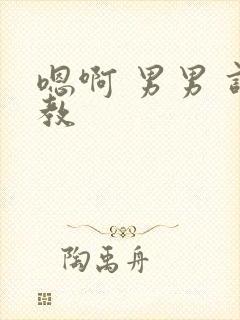 嗯啊 男男
教
陶禹舟